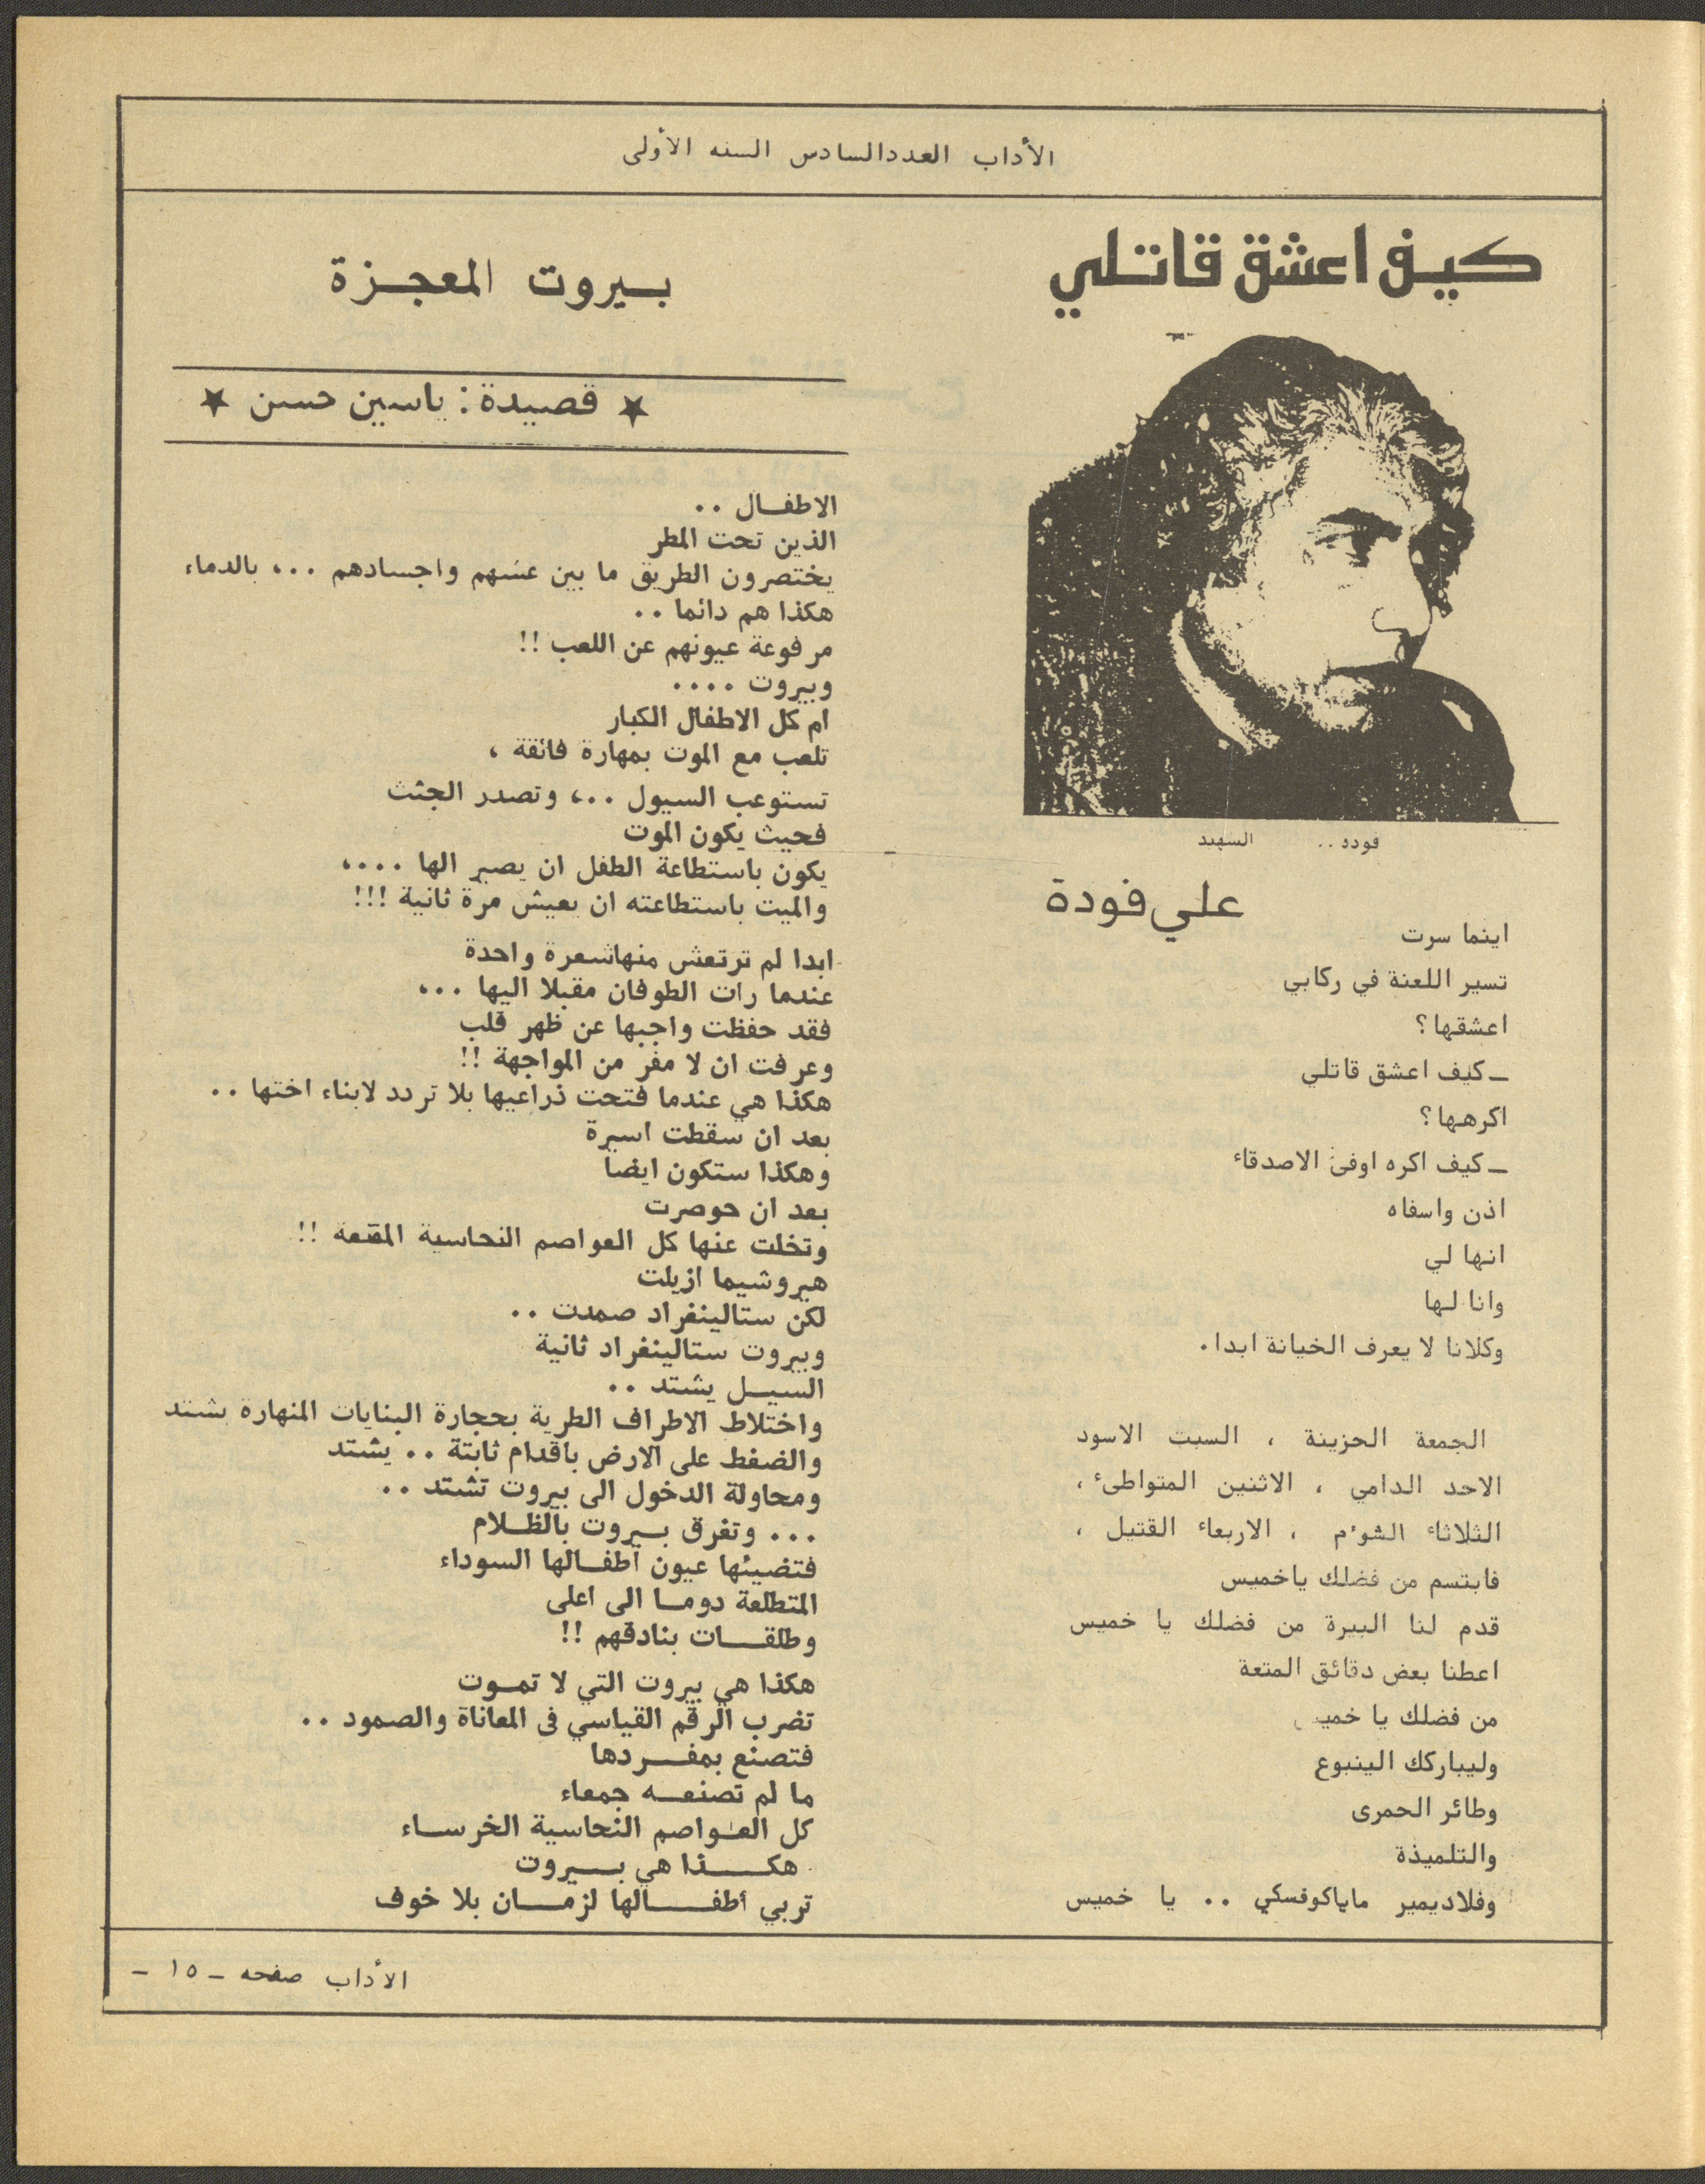 الأداب العدد السادس السنه الأولى
كيف اعشق قاتلي
فوده .. الشهيد
علي فودة
اينما سرت
تسير اللعنة في ركابي
اعشقها؟
ـ كيف اعشق قاتلي
اكرهها؟
ـ كيف اكره اوفى الاصدقاء
اذن واسفاه
انها لي
وانا لها
وكلانا لا يعرف الخيانة ابدا.
الجمعة الحزينة ، السبت الاسود
الاحد الدامي ، الاثنين المتواطىء ،
الثلاثاء الشوءم ، الاربعاء القتيل ،
فابتسم من فضلك ياخميس
قدم لنا البيرة من فضلك يا خميس
اعطنا بعض دقائق المتعة
من فضلك يا خميس
وليباركك الينبوع
وطائر الحمرى
والتلميذة
وفلاديمير ماياكوفسكي .. يا خميس
بيروت المعجزة
★ قصيدة: ياسين حسن ★
الاطفال ..
الذين تحت المطر
يختصرون الطريق ما بين عشهم واجسادهم ...، بالدماء
هكذا هم دائما ..
مرفوعة عيونهم عن اللعب !!
وبيروت ....
ام كل الاطفال الكبار
تلعب مع الموت بمهارة فائقة ،
تستوعب السيول ..، وتصدر الجثث
فحيث يكون الموت
يكون باستطاعة الطفل ان يصير الها ....،
والميت باستطاعته ان يعيش مرة ثانية !!!
ابدا لم ترتعش منهاشعرة واحدة
عندما رات الطوفان مقبلا اليها ...،
فقد حفظت واجبها عن ظهر قلب
وعرفت ان لا مفر من المواجهة !!
هكذا هي عندما فتحت ذراعيها بلا تردد لابناء اختها ..
بعد ان سقطت اسيرة
وهكذا ستكون ايضا
بعد ان حوصرت
وتخلت عنها كل العواصم النحاسية المقنعة !!
هيروشيما ازيلت
لكن ستالينغراد صمدت ..
وبيروت ستالينغراد ثانية
السيل يشتد ..
واختلاط الاطراف الطرية بحجارة البنايات المنهارة يشتد
والضغط على الارض باقدام ثابتة .. يشتد
ومحاولة الدخول الى بيروت تشتد ..
... وتغرق بيروت بالظلام
فتضيئها عيون أطفالها السوداء
المتطلعة دوما الى اعلى
وطلقات بنادقهم !!
هكذا هي بيروت التي لا تموت
تضرب الرقم القياسي فى المعاناة والصمود ..
فتصنع بمفردها
ما لم تصنعه جمعاء
كل العواصم النحاسية الخرساء
هكذا هي بيروت
تربي أطفالها لزمان بلا خوف
الأداب صفحه ـ ١٥ ـ